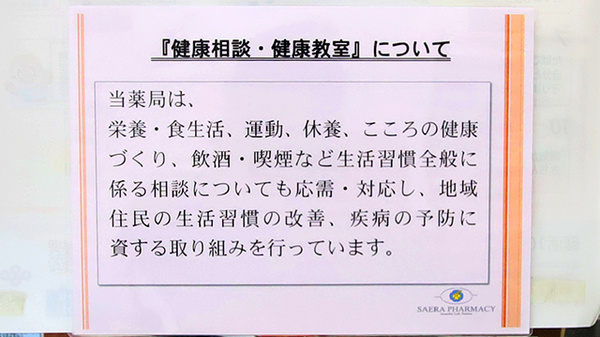 『健康相談・健康教室』について
当薬局は、
栄養・食生活、運動、休養、こころの健康
づくり、飲酒・喫煙など生活習慣全般に
係る相談についても応需・対応し、地域
住民の生活習慣の改善、疾病の予防に
資する取り組みを行っています。
SAERA PHARMACY